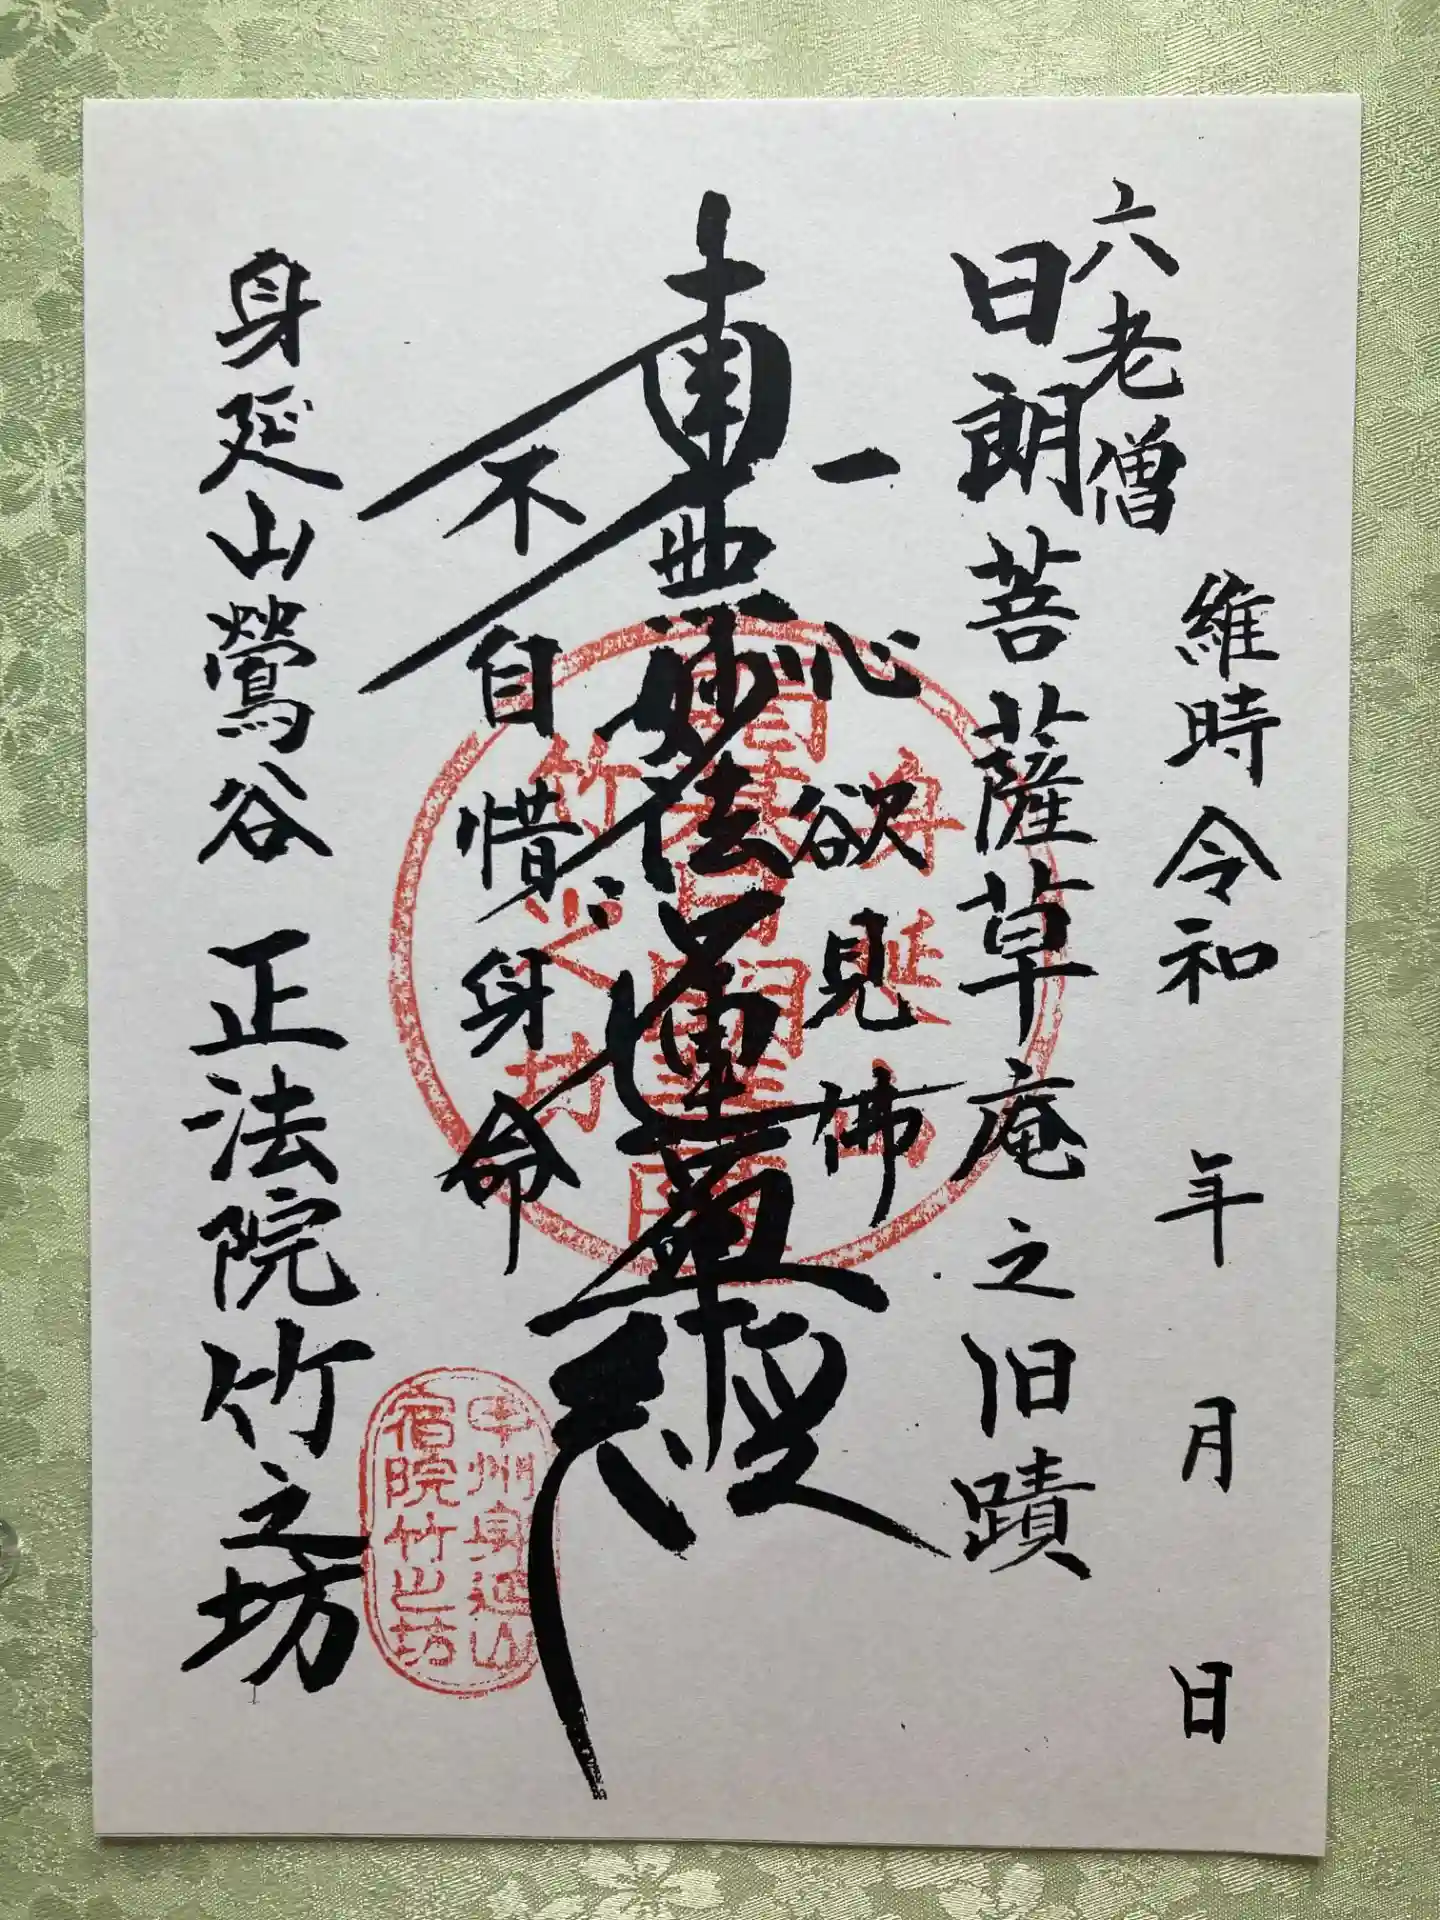 六老僧
維時令和 年 月 日
日朗菩薩草庵之旧蹟
一心欲見佛
南無妙法蓮華経
不自惜身命
身延山鶯谷 正法院竹之坊
身延山
開基日朗菩薩
竹之坊
甲州身延山
宿院竹之坊